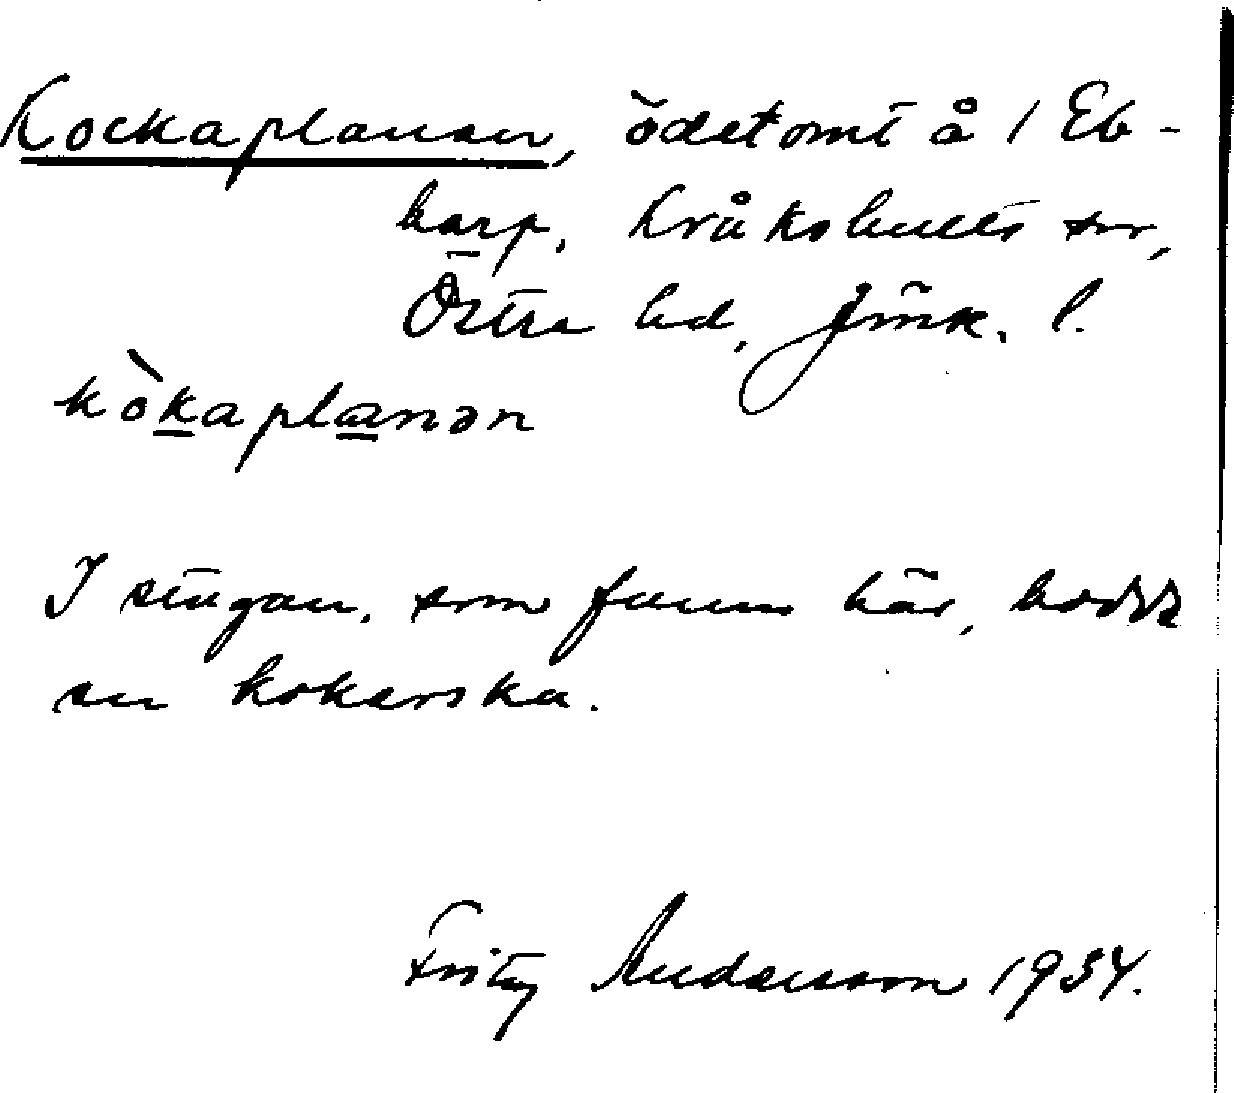 Kockaplanen, ödetomt å 1 Eb-
barp, Kråkshults sn,
Östra hd, Jönk. l.
kòkaplanən
I stugan, som funnits här, bodde
en kokerska.
Fritz Andersson 1934.